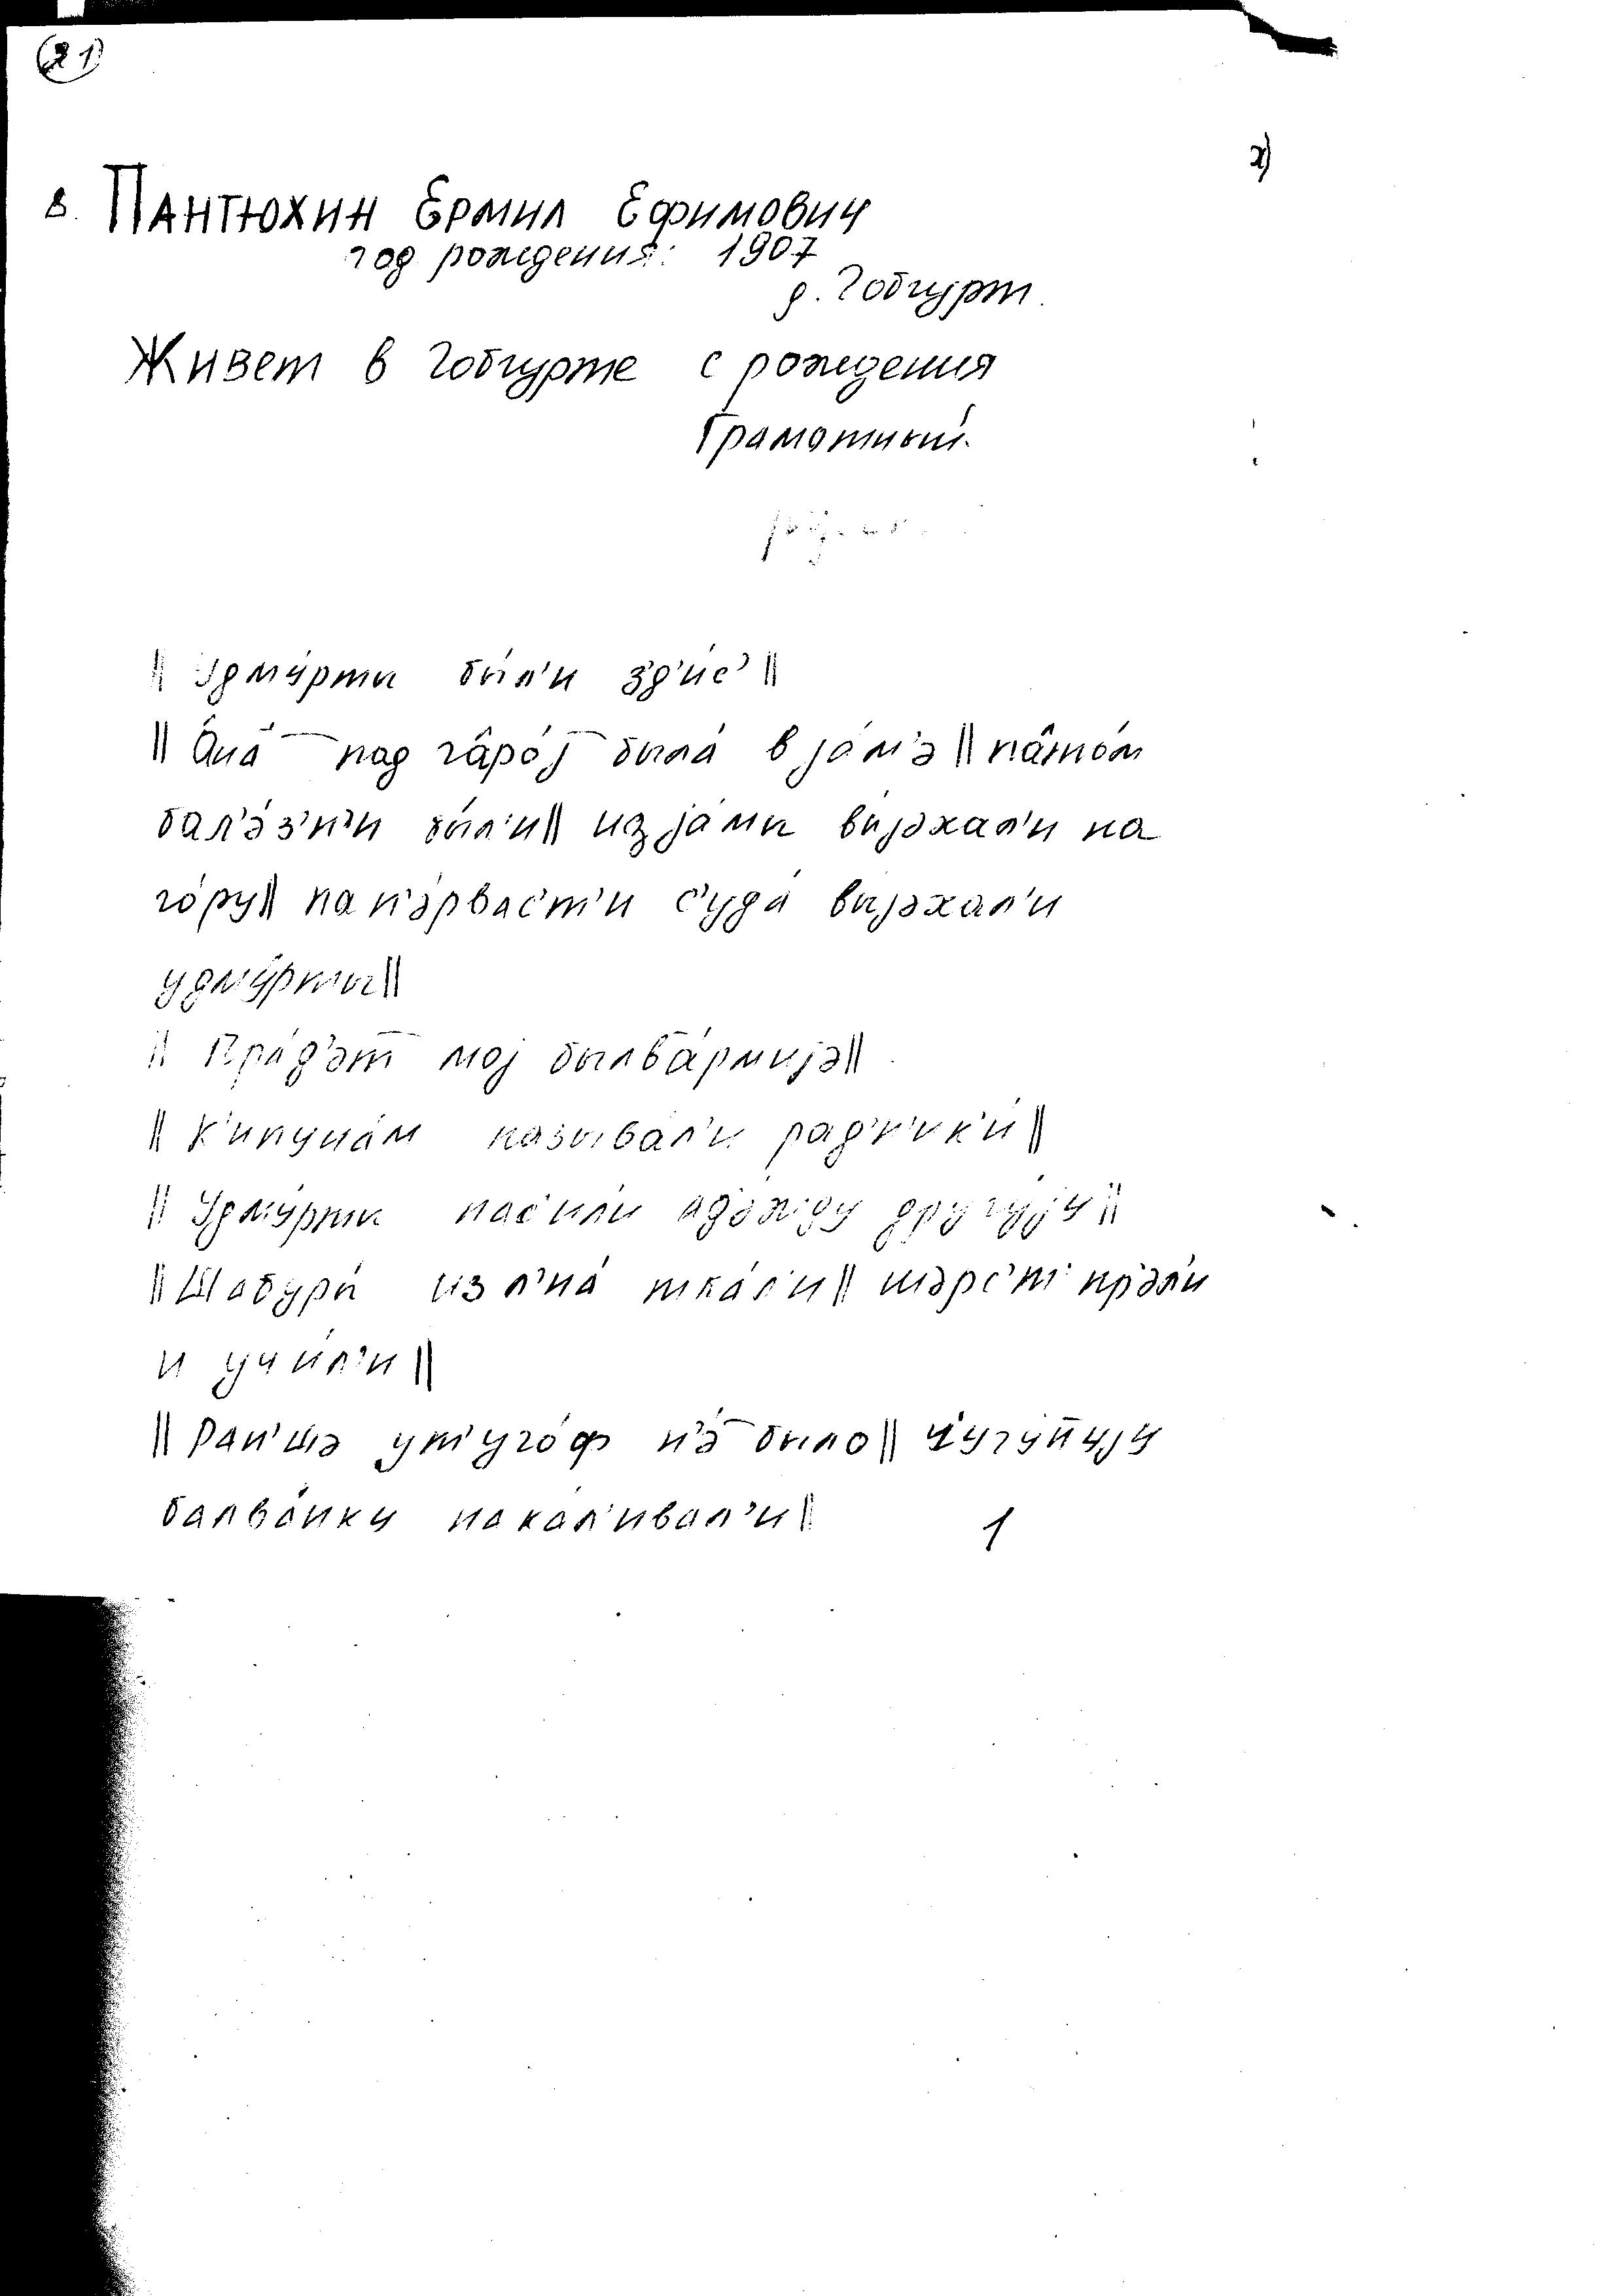 (21)
2)
8. Пантюхин Ермил Ефимович
год рождения: 1907
д. Гобгурт.
Живет в Гобгурте с рождения
Грамотный.
‖ Удму́рты бы́л'и з'д'ис' ‖
‖ Âна́ под гâро́j была́ в jа́м'э ‖ пâто́м
бал'э́з'н'и бы́л'и ‖ из jа́мы вы́jэхал'и на
го́ру ‖ на п'э́рвас'т'и с'уда́ вы́jэхал'и
удму́рты ‖
‖ Пра́д'эт моj был в а́рмиjэ ‖
‖ К'ипуна́м называ́л'и рад'н'ик'и́ ‖
‖ Удму́рты нас'и́ли ад'э́жду другу́jу ‖
‖ Шабуры́ из л'на́ тка́л'и ‖ шэрс'т' пр'а́л'и
и учи́л'и ‖
‖ Ра́н'шэ ут'уго́ф н'э́ было ‖ чугу́нуjу
балва́нку нака́л'ивал'и ‖
1